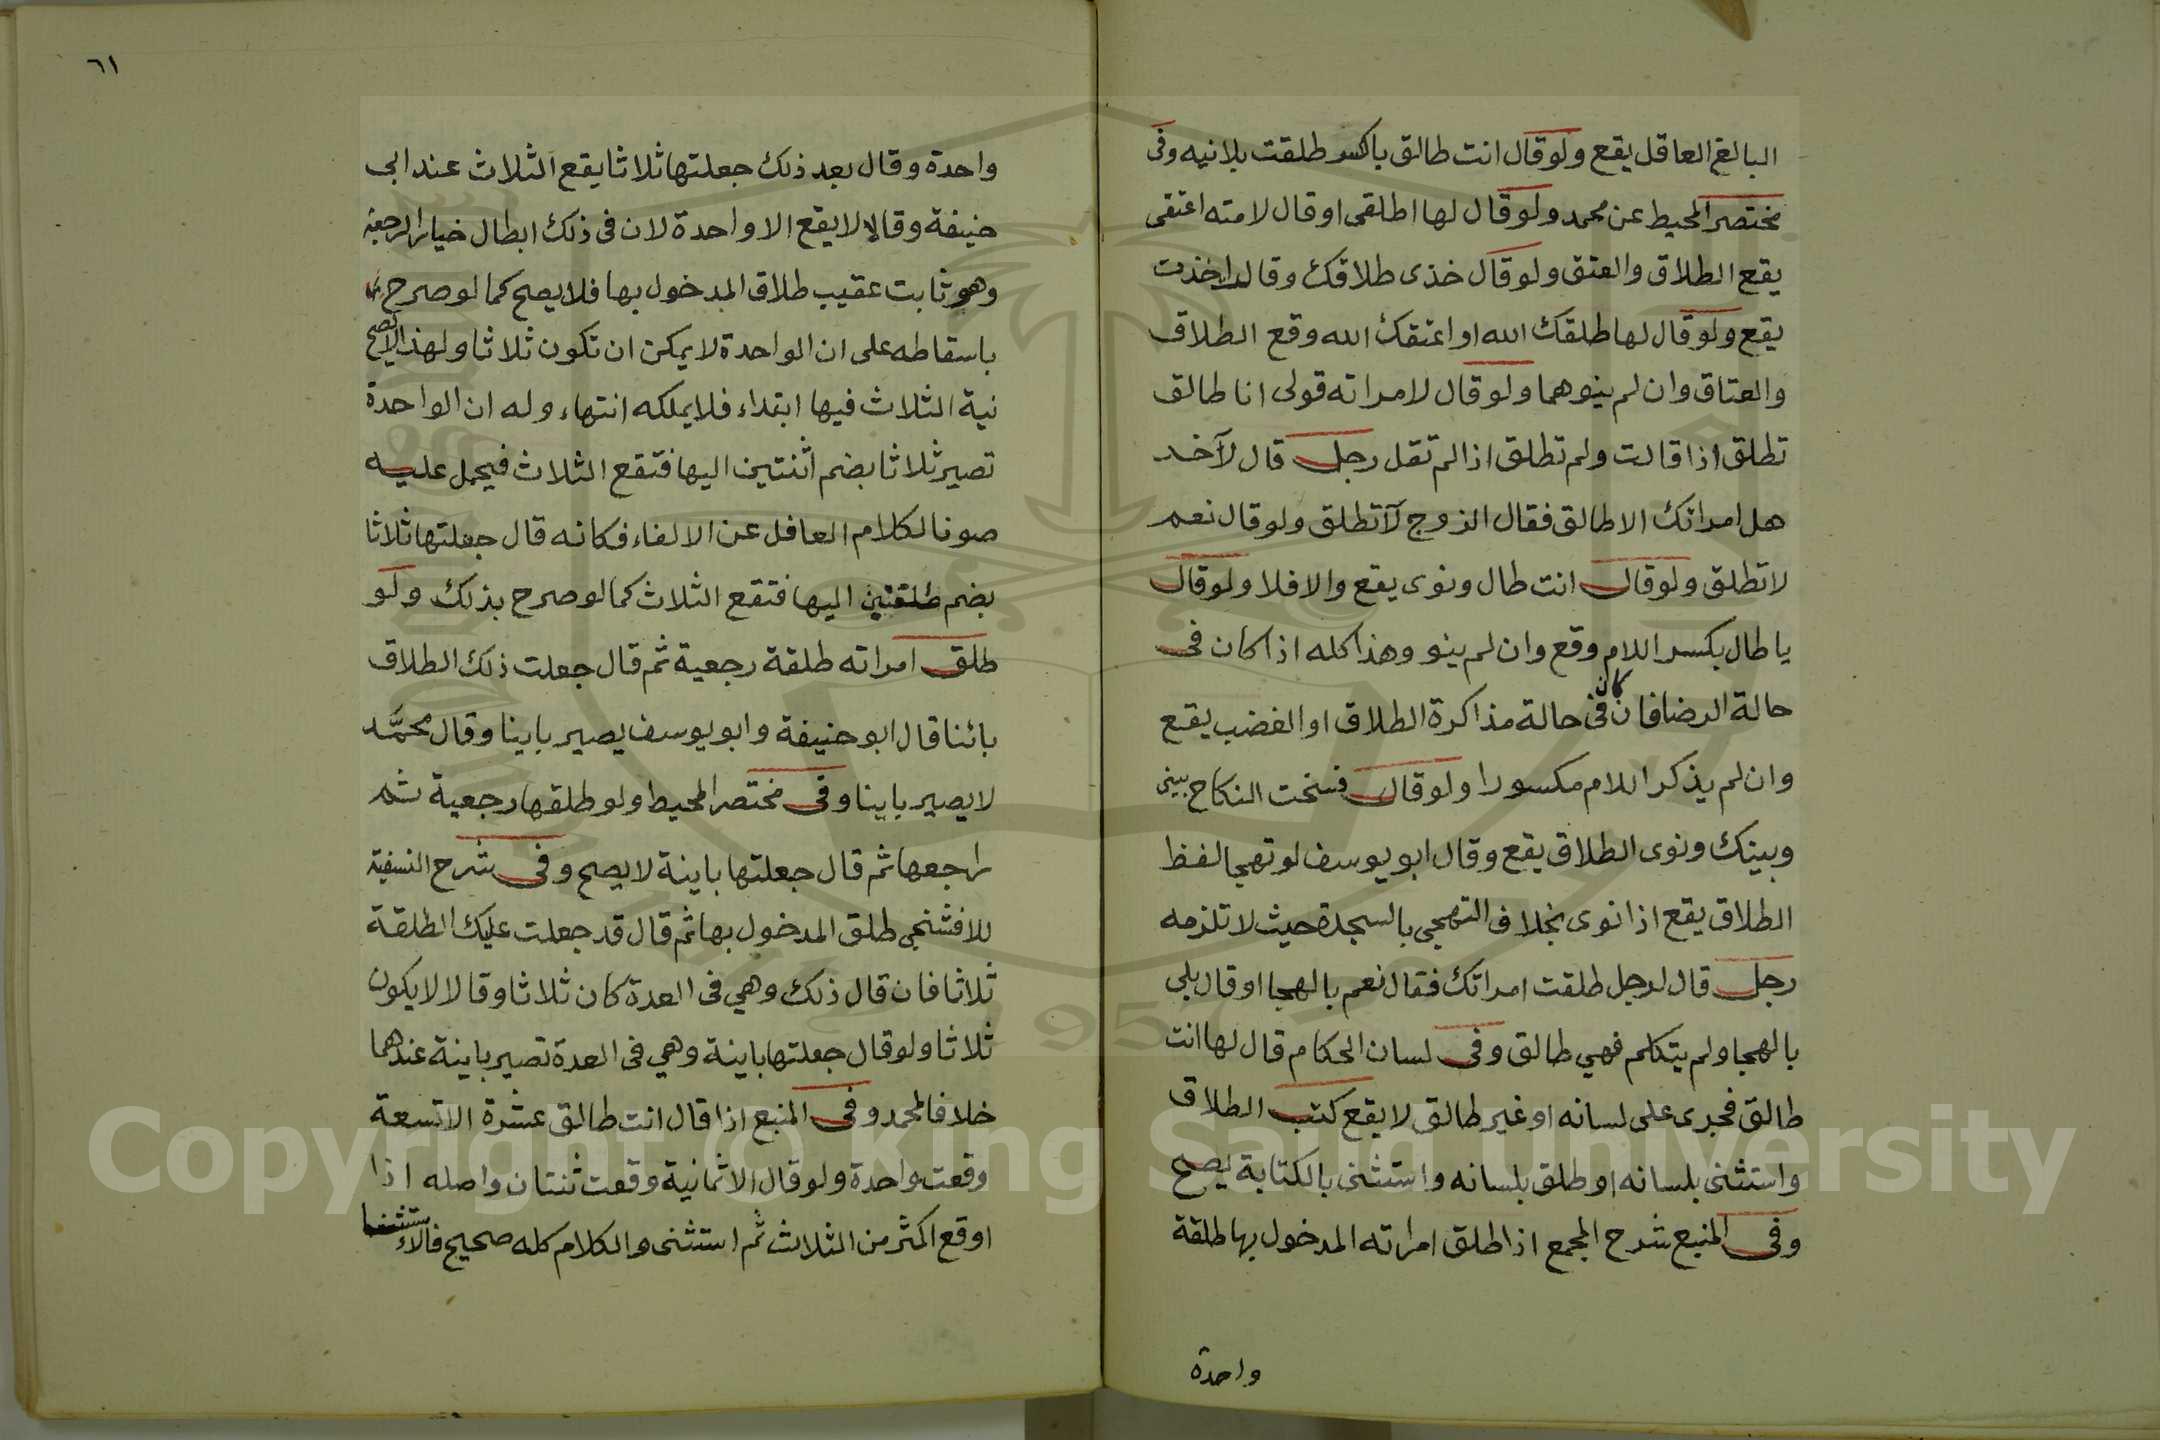 البالغ العاقل يقع ولو قال انت طالق باكسر طلقت بلانيه وفى
مختصر المحيط عن محمد ولو قال لها اطلقى او قال لامته اعتقى
يقع الطلاق والعتق ولو قال خذى طلاقك وقالت اخذت
يقع ولو قال لها طلقك الله او اعتقك الله وقع الطلاق
والعتاق وان لم ينوهما ولو قال لامراته قولى انا طالق
تطلق اذا قالت ولم تطلق اذا لم تقل رجل قال لآخر
هل امراتك الا طالق فقال الزوج لآ تطلق ولو قال نعم
لا تطلق ولو قال انت طال ونوى يقع والا فلا ولو قال
يا طال بكسر اللام وقع وان لم ينو وهذا كله اذا كان فى
حالة الرضا فان كان فى حالة مذاكرة الطلاق او الغضب يقع
وان لم يذكر اللام مكسورا ولو قال فسخت النكاح بينى
وبينك ونوى الطلاق يقع وقال ابو يوسف لو تهجا لفظ
الطلاق يقع اذا نوى بخلاف التهجى بالسجدة حيث لا تلزمه
رجل قال لرجل طلقت امراتك فقال نعم بالهجا او قال بلى
بالهجا ولم يتكلم فهي طالق وفى لسان الحكام قال لها انت
طالق فجرى على لسانه او غير طالق لا يقع كتب الطلاق
واستثنى بلسانه او طلق بلسانه واستثنى بالكتابة يصح
وفى المنبع شرح المجمع اذا طلق امراته المدخول بها طلقة
واحدة
٦١
واحدة وقال بعد ذلك جعلتها ثلاثا يقع الثلاث عند ابى
حنيفة وقالا لا يقع الا واحدة لان فى ذلك ابطال خيار الرجعة
وهو ثابت عقيب طلاق المدخول بها فلا يصح كما لو صرح
باسقاطه على ان الواحدة لا يمكن ان تكون ثلاثا ولهذا لا تصح
نية الثلاث فيها ابتداء فلا يملكه انتهاء وله ان الواحدة
تصير ثلاثا بضم اثنتين اليها فتقع الثلاث فيحمل عليه
صونا لكلام العاقل عن الالغاء فكانه قال جعلتها ثلاثا
بضم طلقتين اليها فتقع الثلاث كما لو صرح بذلك ولو
طلق امراته طلقة رجعية ثم قال جعلت ذلك الطلاق
بائنا قال ابو حنيفة وابو يوسف يصير باينا وقال محمَّد
لا يصير باينا وفى مختصر المحيط ولو طلقها رجعية ثم
راجعها ثم قال جعلتها باينة لا يصح وفى شرح النسفية
للافشنجى طلق المدخول بها ثم قال قد جعلت عليك الطلقة
ثلاثا فان قال ذلك وهي فى العدة كان ثلاثا وقالا لا يكون
ثلاثا ولو قال جعلتها باينة وهي فى العدة تصير باينة عندهما
خلافا لمحمد وفى المنبع اذا قال انت طالق عشرة الا تسعة
وقعت واحدة ولو قال الا ثمانية وقعت ثنتان واصله اذا
اوقع اكثر من الثلاث ثم استثنى والكلام كله صحيح فالاستثنا
Copyright © King Saud University
1957